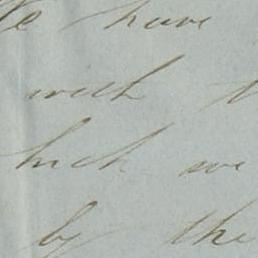 have
with
hich we
by the